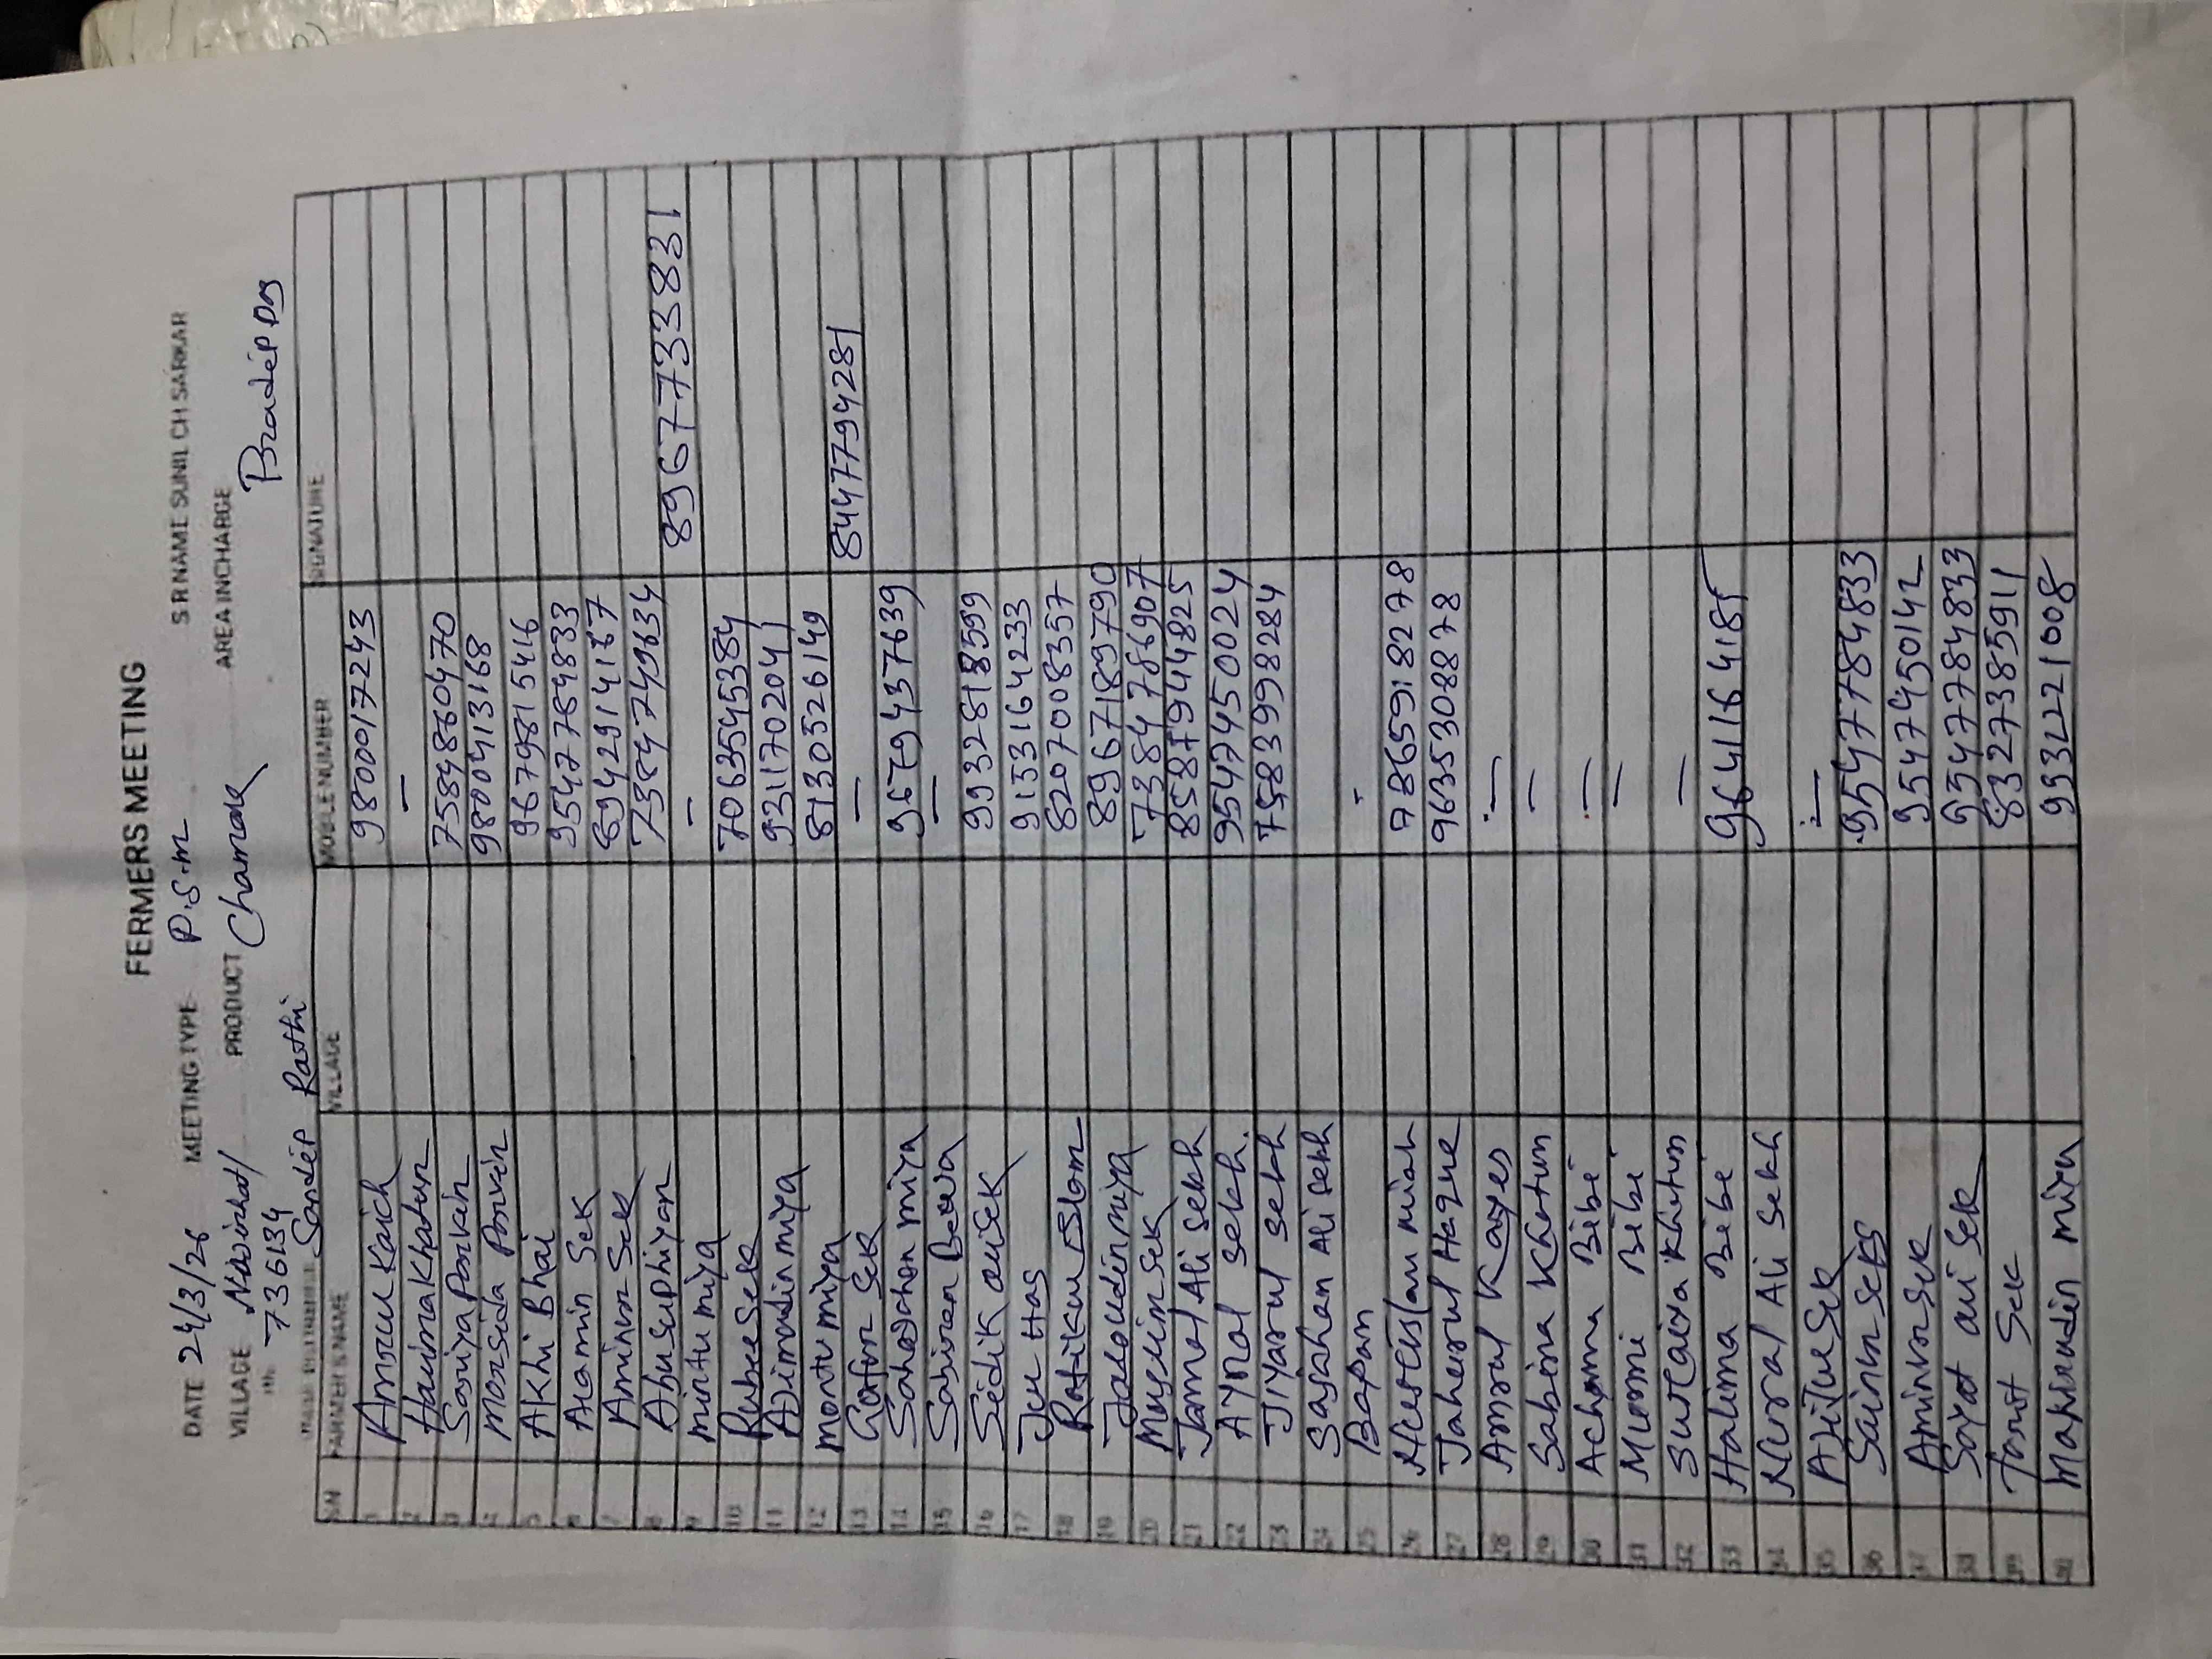 FERMERS MEETING
DATE 24/3/26 MEETING TYPE P.S.M S R NAME SUNIL CH SARKAR
VILLAGE PRODUCT Chamak AREA INCHARGE Pradip Das
736134
Sandip Rathi
SN FARMERS NAME VILLAGE MOBLE NUMBER SIGNATURE
1 9800017243
2 Harima Khatun —
3 Soniya Parkin 7584860470
4 Morsida Parvin 9800413168
5 Akhi Bhai 9679815416
6 Alamin Sek 9547784833
7 Aminur Sek 8942914167
8 Abu Suphiyan 7384749634 8967733831
9 mintu miya —
10 Rubee Sek 7063545384
11 Ajimodin miya 9311702041
12 montu miya 8130526149 8447794281
13 Gafur Sek —
14 Sahadahon miya 9679437639
15 Sabiran Bewa —
16 Sedik ouisek 9932818599
17 9153164233
18 Rafikul Eslom 8207008357
19 8967189790
20 Muslim Sek 7384786907
21 Jamal Ali Sekh 8587944825
22 Aynal Sekh. 9547450024
23 Jiyarul Sekh 7583998284
24 Sajahan Ali Sekh
25 Bapan -
26 Nurislam miah 7865918278
27 Jaherul Haque 9635308878
28 Amrul Kayes —
29 Sabina Khatun —
30 Achama Bibi —
31 Mummi Bibi —
32 Suraiya Khatun —
33 Halima Bibi 9641164185
34 Nural Ali Sekh
35 Ajitul Sek —
36 Sainur Seks 9547784833
37 Aminur Sek 9547450142
38 Soyot oui Sek 9547784833
39 Sek 8327385911
40 Mahirudin miya 9932221008